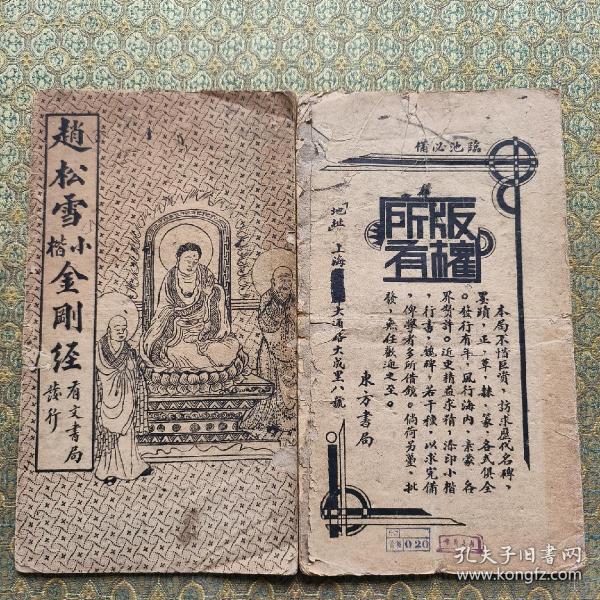 趙松雪小楷金剛經
有文書局
發行
臨池必備
版權
所有
地址 上海
大通路大成里
本局不惜巨資，訪求歷代名碑，
墨蹟，正，草，隸，篆，各式俱全
。發行有年，風行海內，素蒙 各
界贊許。近更精益求精，添印小楷
，行書，魏碑，若干種，以求完備
，俾學者多所借鏡。倘荷 光臨，批
發，無任歡迎之至。
東方書局
0.20
孔夫子旧书网
www.kongfz.com